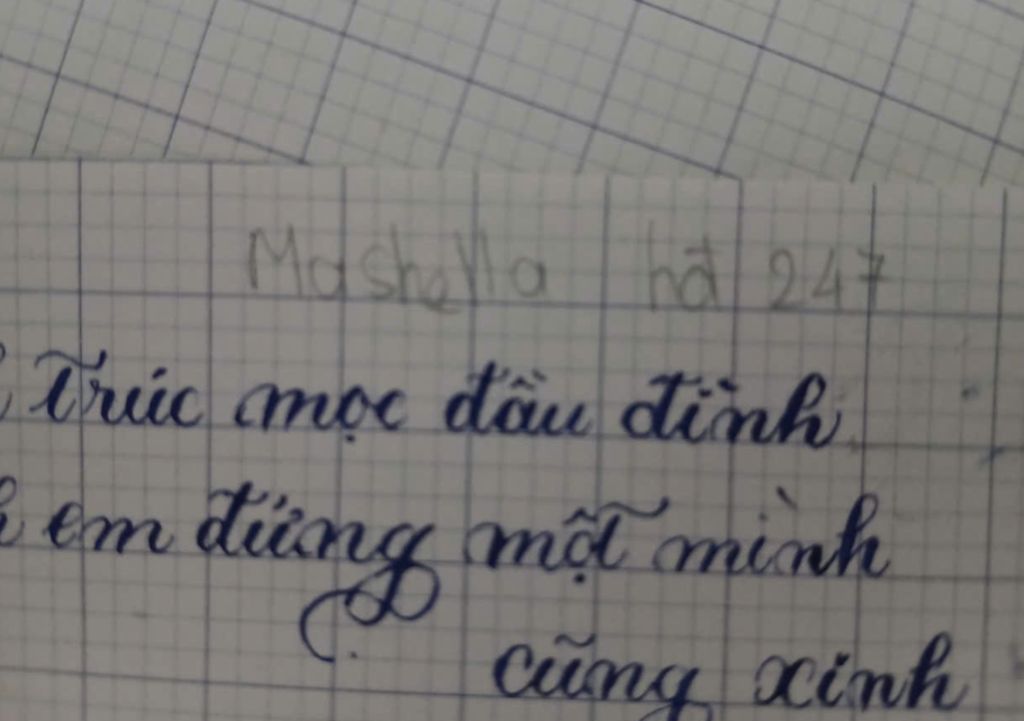 Mashella hát 247
Trúc mọc đầu đình
em đứng một mình
cũng xinh